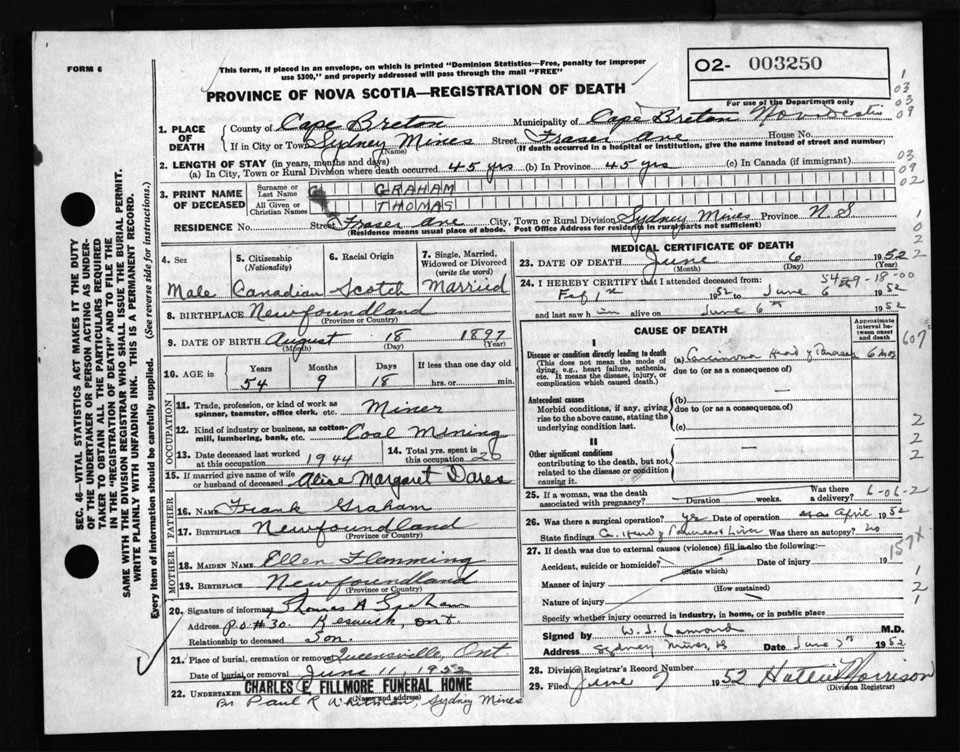 FORM 6
This form, if placed in an envelope, on which is printed "Dominion Statistics—Free, penalty for improper
use $300," and properly addressed will pass through the mail "FREE"
O2- 003250
For use of the Department only
PROVINCE OF NOVA SCOTIA—REGISTRATION OF DEATH
1. PLACE OF DEATH
County of Cape Breton Municipality of Cape Breton
If in City or Town Sydney Mines Street Fraser Ave House No.
(Name) (If death occurred in a hospital or institution, give the name instead of street and number)
2. LENGTH OF STAY (in years, months and days)
(a) In City, Town or Rural Division where death occurred 45 yrs (b) In Province 45 yrs (c) In Canada (if immigrant)
3. PRINT NAME OF DECEASED
Surname or Last Name GRAHAM
All Given or Christian Names THOMAS
RESIDENCE No. Street Fraser Ave City, Town or Rural Division Sydney Mines Province N S
(Residence means usual place of abode. Post Office Address for residents in rural parts not sufficient)
4. Sex Male
5. Citizenship (Nationality) Canadian
6. Racial Origin Scotch
7. Single, Married, Widowed or Divorced (write the word) Married
8. BIRTHPLACE Newfoundland
(Province or Country)
9. DATE OF BIRTH August 18 1897
(Month) (Day) (Year)
10. AGE in Years Months Days If less than one day old
54 9 18 hrs. or min.
OCCUPATION
11. Trade, profession, or kind of work as spinner, teamster, office clerk, etc. Miner
12. Kind of industry or business, as cotton-mill, lumbering, bank, etc. Coal Mining
13. Date deceased last worked at this occupation 1944
14. Total yrs. spent in this occupation 20
15. If married give name of wife or husband of deceased Alice Margaret Dares
FATHER
16. Name Frank Graham
17. Birthplace Newfoundland
(Province or Country)
MOTHER
18. Maiden Name Ellen Flemming
19. Birthplace Newfoundland
(Province or Country)
20. Signature of informant Thomas A Graham
Address P.O. #30. Keswick, Ont
Relationship to deceased Son.
21. Place of burial, cremation or removal Queensville, Ont
Date of burial or removal June 11, 1952
22. UNDERTAKER CHARLES E FILLMORE FUNERAL HOME
(Name and address)
Per Paul R Whitman, Sydney Mines
MEDICAL CERTIFICATE OF DEATH
23. DATE OF DEATH June 6 1952
(Month) (Day) (Year)
24. I HEREBY CERTIFY that I attended deceased from:
54-9-18-00
1952 to June 1952
and last saw him alive on June 6th 1952
CAUSE OF DEATH
Approximate interval between onset and death
I
Disease or condition directly leading to death (This does not mean the mode of dying, e.g., heart failure, asthenia, etc. It means the disease, injury, or complication which caused death.)
(a) Carcinoma Head of Pancreas 6 mos
due to (or as a consequence of)
Antecedent causes
Morbid conditions, if any, giving rise to the above cause, stating the underlying condition last.
(b)
due to (or as a consequence of)
(c)
II
Other significant conditions contributing to the death, but not related to the disease or condition causing it.
25. If a woman, was the death associated with pregnancy? Duration weeks. Was there a delivery?
6-06-2
26. Was there a surgical operation? yes Date of operation April 1952
State findings Ca. Head of Pancreas & Liver Was there an autopsy? no
27. If death was due to external causes (violence) fill in also the following:
Accident, suicide or homicide? Date of injury 19
(State which)
Manner of injury
(How sustained)
Nature of injury
Specify whether injury occurred in industry, in home, or in public place
Signed by M.D.
Address Sydney Mines, NS Date June 7th 1952
28. Division Registrar's Record Number
29. Filed June 9 1952 Hattie Morrison
(Division Registrar)
157X
SEC. 46—VITAL STATISTICS ACT MAKES IT THE DUTY
OF THE UNDERTAKER OR PERSON ACTING AS UNDER-
TAKER TO OBTAIN ALL THE PARTICULARS REQUIRED
IN THE "REGISTRATION OF DEATH" AND TO FILE THE
SAME WITH THE DIVISION REGISTRAR WHO SHALL ISSUE THE BURIAL PERMIT.
WRITE PLAINLY WITH UNFADING INK. THIS IS A PERMANENT RECORD.
Every item of information should be carefully supplied. (See reverse side for instructions.)